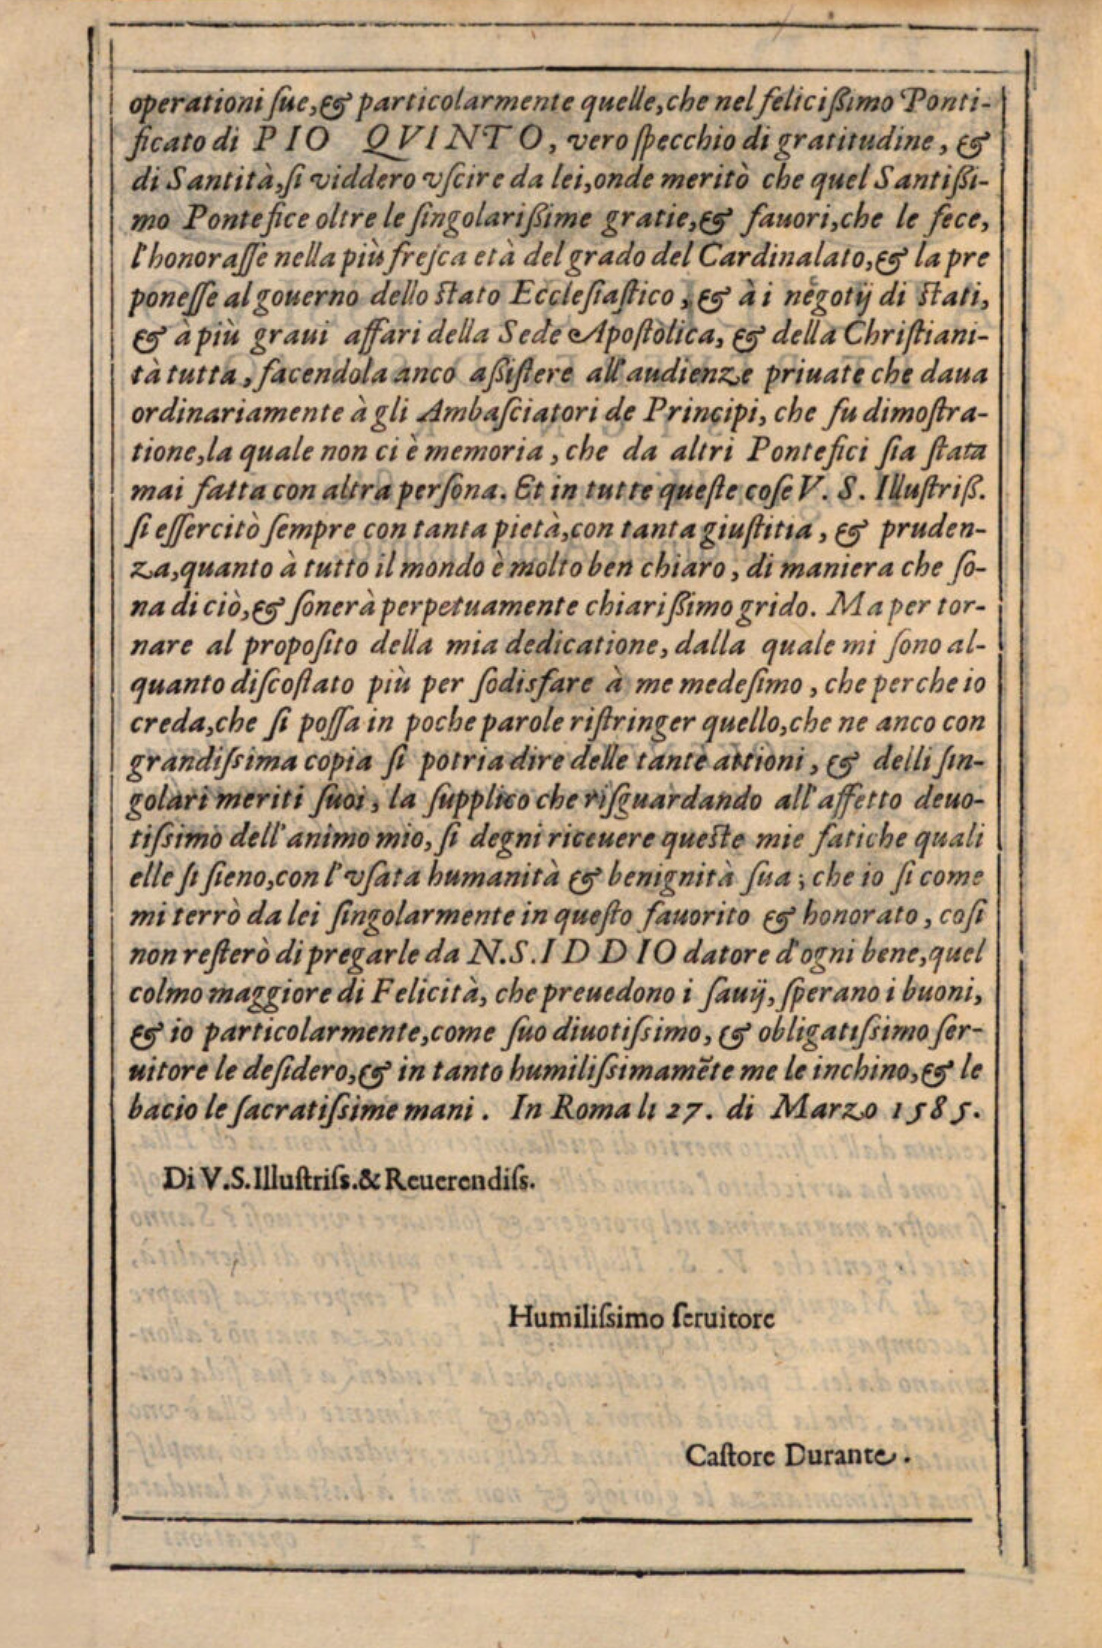 operationi ſue,& particolarmente quelle,che nel feliciſsimo Ponti-
ficato di PIO QVINTO, vero ſpecchio di gratitudine, &
di Santità,ſi viddero vſcire da lei,onde meritò che quel Santiſsi-
mo Pontefice oltre le ſingolariſsime gratie,& fauori,che le fece,
l'honoraſſe nella più freſca età del grado del Cardinalato,& la pre
poneſſe al gouerno dello ſtato Eccleſiaſtico, & à i negotij di ſtati,
& à più graui affari della Sede Apoſtolica, & della Chriſtiani-
tà tutta, facendola anco aſsiſtere all'audienze priuate che daua
ordinariamente à gli Ambaſciatori de Principi, che fu dimoſtra-
tione,la quale non ci è memoria, che da altri Pontefici ſia ſtata
mai fatta con altra perſona. Et in tutte queſte coſe V. S. Illuſtriſs.
ſi eſſercitò ſempre con tanta pietà,con tanta giuſtitia, & pruden-
za,quanto à tutto il mondo è molto ben chiaro, di maniera che ſo-
na di ciò,& ſonerà perpetuamente chiariſsimo grido. Ma per tor-
nare al propoſito della mia dedicatione, dalla quale mi ſono al-
quanto diſcoſtato più per ſodisfare à me medeſimo, che perche io
creda,che ſi poſſa in poche parole riſtringer quello,che ne anco con
grandiſsima copia ſi potria dire delle tante attioni, & delli ſin-
golari meriti ſuoi, la ſupplico che riſguardando all'affetto deuo-
tiſsimo dell'animo mio, ſi degni riceuere queſte mie fatiche quali
elle ſi ſieno,con l'vſata humanità & benignità ſua; che io ſi come
mi terrò da lei ſingolarmente in queſto fauorito & honorato, coſi
non reſterò di pregarle da N.S. IDDIO datore d'ogni bene,quel
colmo maggiore di Felicità, che preuedono i ſauij, ſperano i buoni,
& io particolarmente,come ſuo diuotiſsimo, & obligatiſsimo ſer-
uitore le deſidero,& in tanto humiliſsimamẽte me le inchino,& le
bacio le ſacratiſsime mani. In Roma li 27. di Marzo 1585.
Di V.S. Illuſtriſs.& Reuerendiſs.
Humiliſsimo ſeruitore
Caſtore Durante.